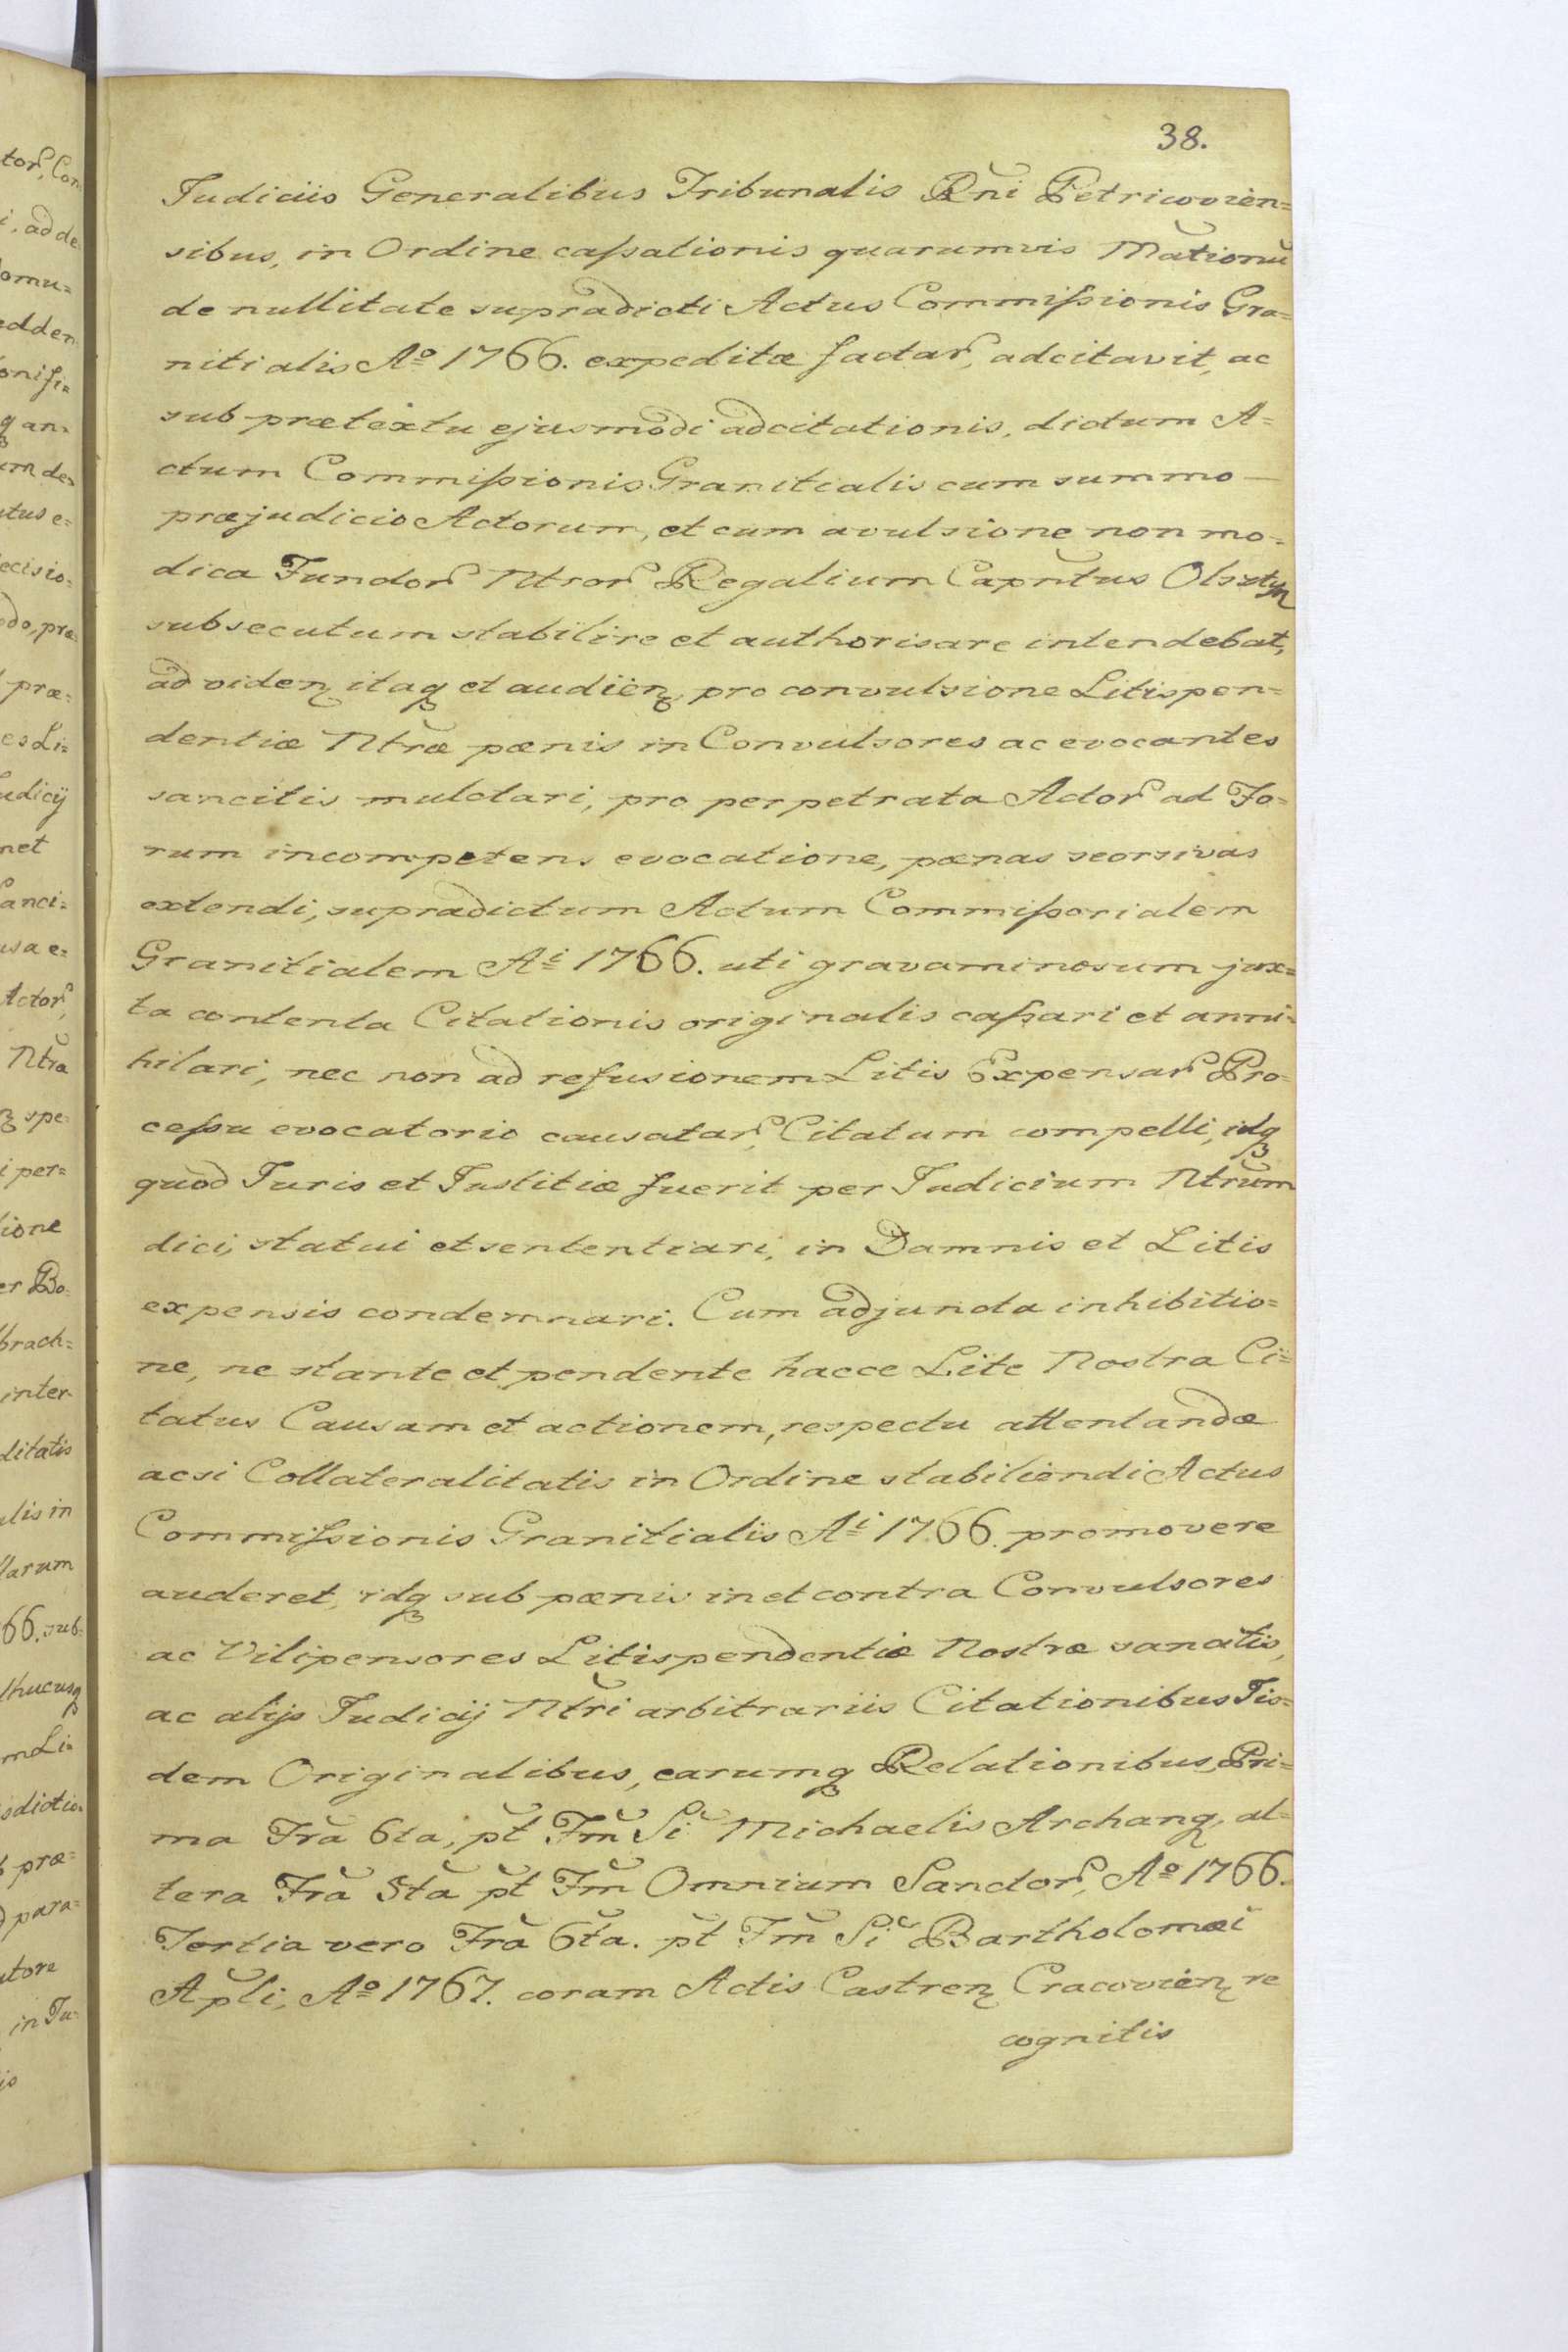 38.
Judiciis Generalibus Tribunalis Rni Petricovien=
sibus, in Ordine cassationis quarumvis Mationũ
de nullitate supradicti Actus Commissionis Gra=
nitialis Aº 1766. expeditæ factar, adcitavit, ac
sub prætextu ejusmodi adcitationis, dictum A=
ctum Commissionis Granitialis cum summo —
præjudicio Actorum, et cum avulsione non mo=
dica Fundor Ntror Regalium Capntus Olsztyn
subsecutum stabilire et authorisare intendebat,
ad viden itaq et audien, pro convulsione Litispen=
dentiæ Ntræ pænis in Convulsores ac evocantes
sancitis mulctari, pro perpetrata Actor ad Fo=
rum incompetens evocatione, pænas seorsivas
extendi, supradictum Actum Commissorialem
Granitialem Ai 1766. uti gravaminosum jux=
ta contenta Citationis originalis cassari et anni=
hilari, nec non ad refusionem Litis Expensar Pro=
cessu evocatorio causatar, Citatum compelli, idq
quod Juris et Justitiæ fuerit per Judicium Ntrum
dici, statui et sententiari, in Damnis et Litis
expensis condemnari. Cum adjuncta inhibitio=
ne, ne stante et pendente hacce Lite Nostra Ci=
tatus Causam et actionem, respectu attentandæ
acsi Collateralitatis in Ordine stabiliendi Actus
Commissionis Granitialis Ai 1766. promovere
auderet, idq sub pænis in et contra Convulsores
ac Vilipensores Litispendentiæ Nostræ sancitis,
ac alijs Judicij Ntri arbitrariis Citationibus Iis=
dem Originalibus, earumq Relationibus, Pri=
ma Fra 6ta, pt Fm Si Michaelis Archang, al=
tera Fra 5ta pt Fm Omnium Sanctor, Aº 1766.
Tertia vero Fra 6ta. pt Fm Si Bartholomæi
Apli, Aº 1767. coram Actis Castren Cracovien re
cognitis